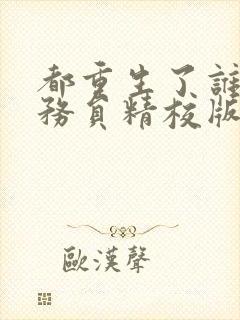 都重生了誰
務員精校版
歐漢聲